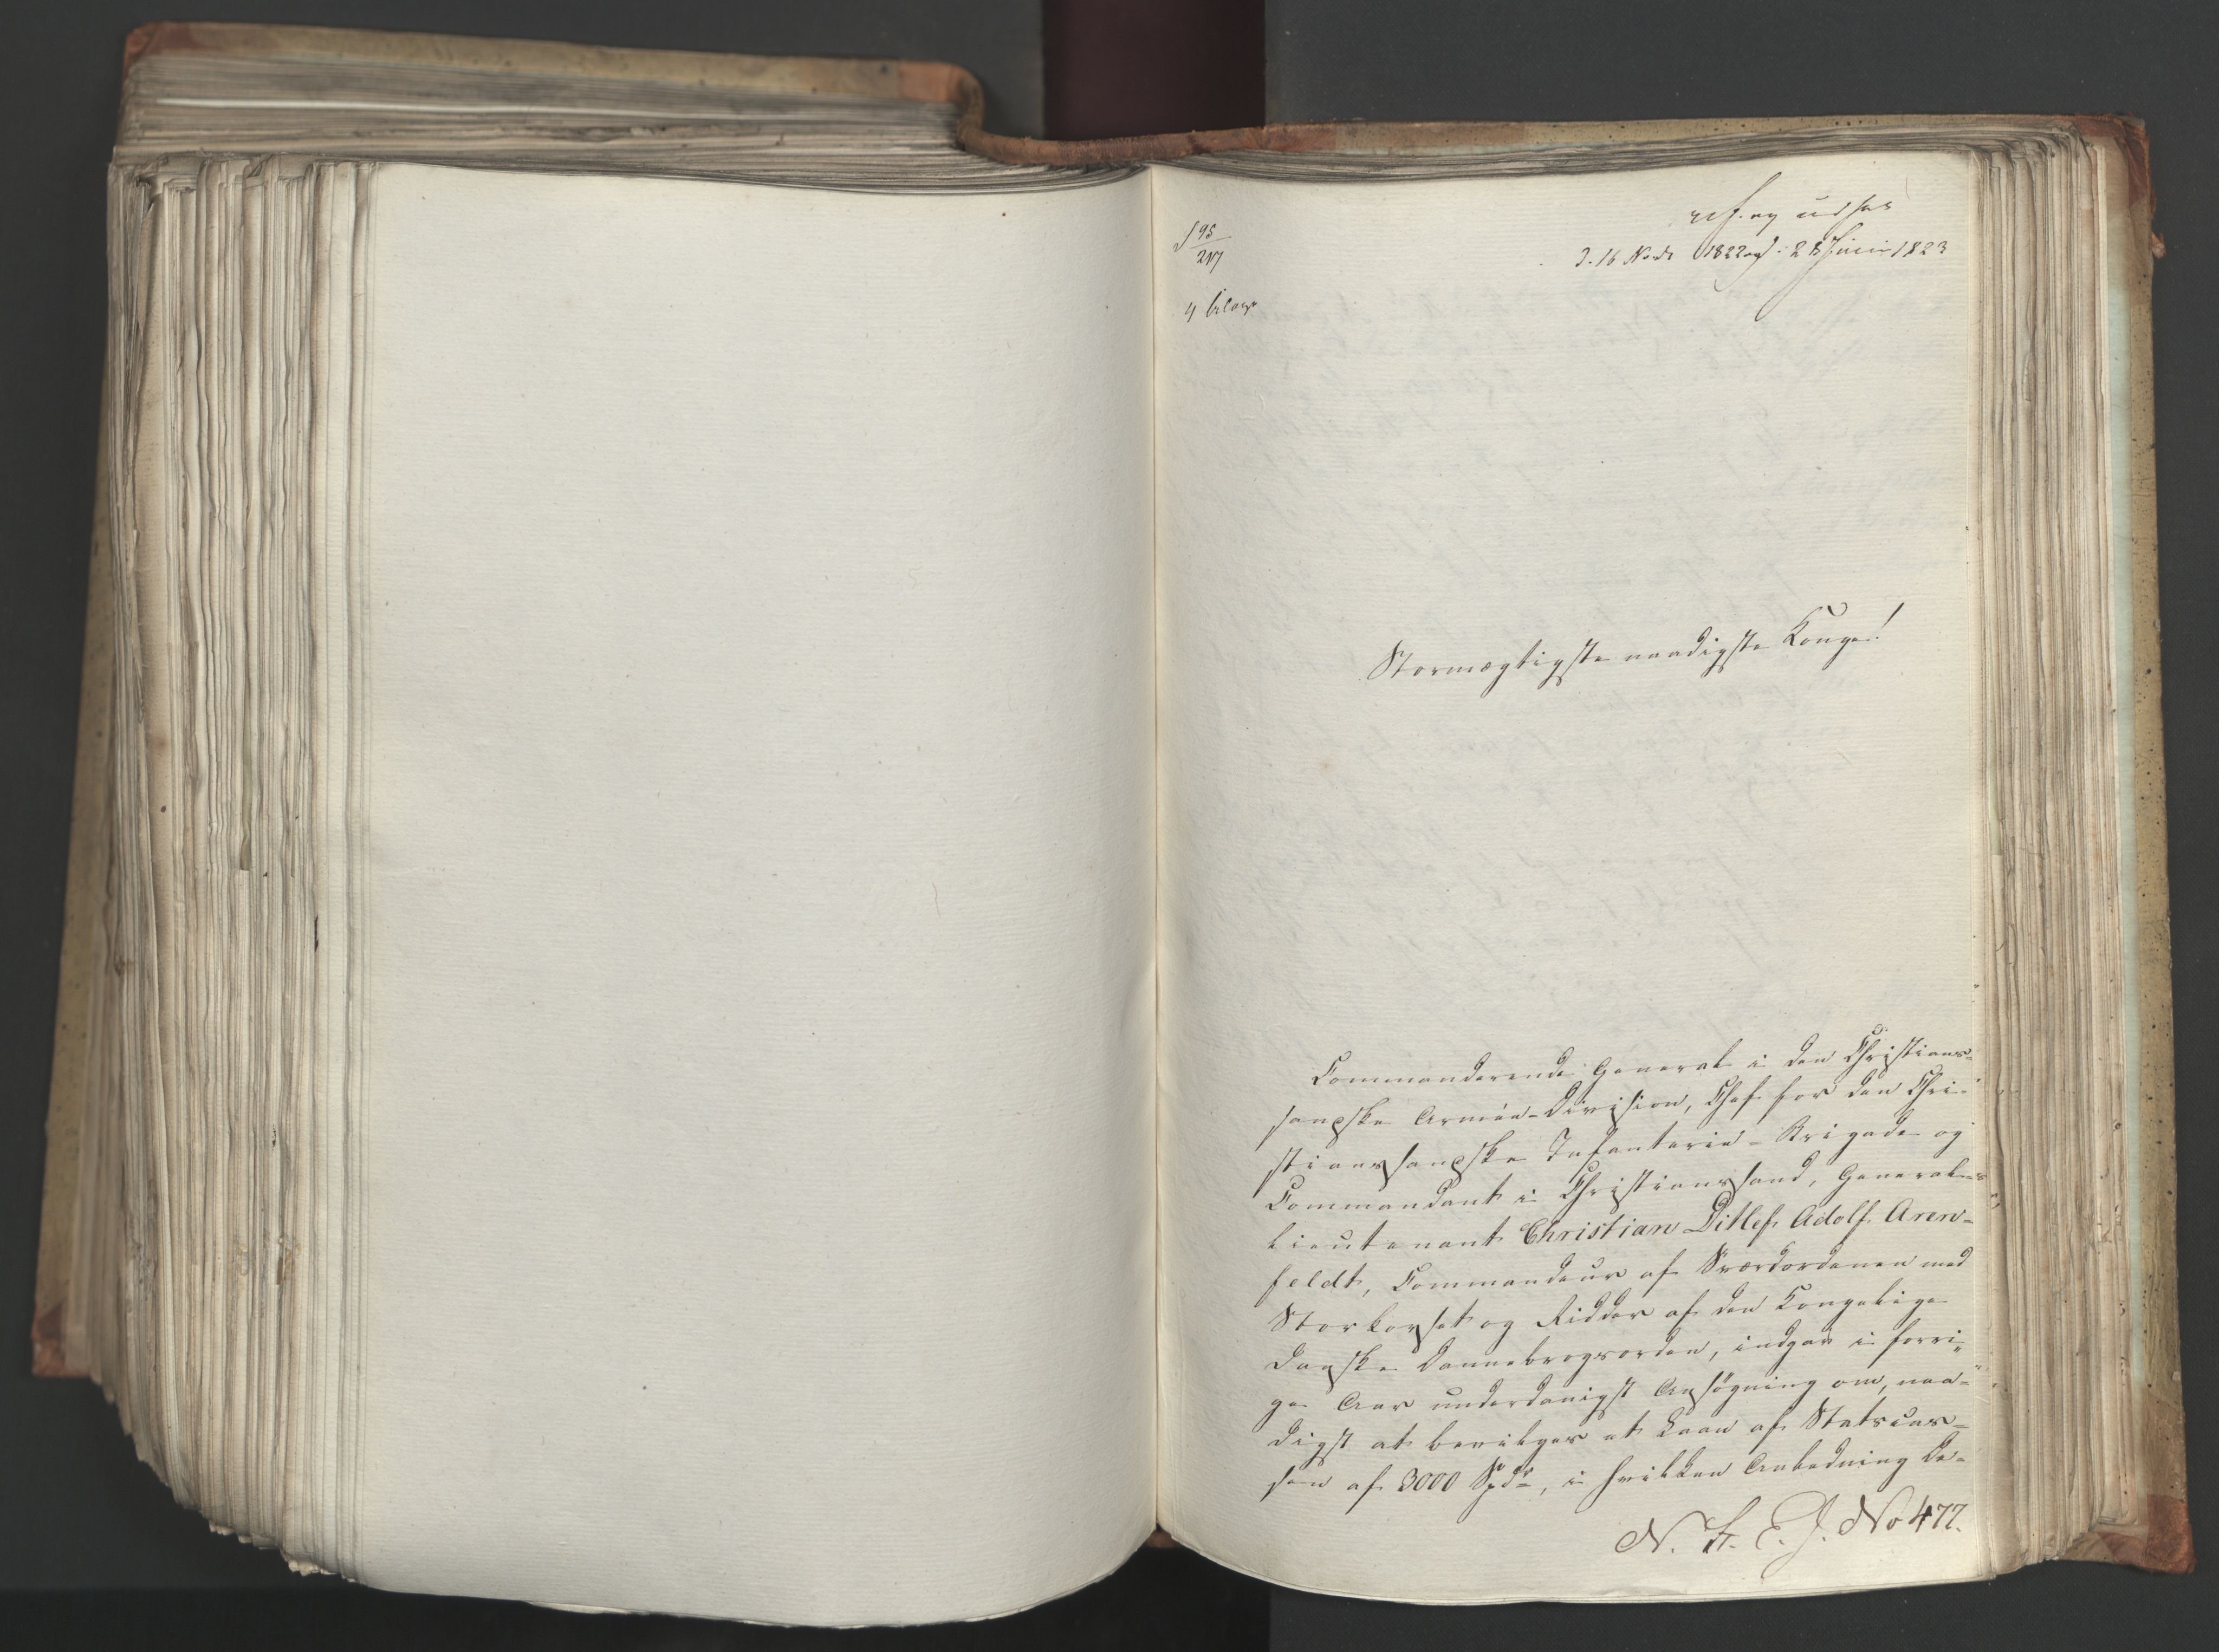 95
217
4 bilag
ref. og udsat
d. 16 Novbr 1822 og d. 28 Juni 1823
Stormægtigste naadigste Konge!
Commanderende General i den Christians-
sandske Armée-Division, Chef for den Chri-
stianssandske Infanterie-Brigade og
Commandant i Christianssand, General-
lieutenant Christian Ditlef Adolf Aren-
feldt, Commandeur af Sværdordenen med
Storkorset og Ridder af den Kongelige
danske Dannebrogsorden, indgav i forri-
ge Aar underdanigst Ansøgning om, naa-
digst at bevilges et Laan af Statscas-
sen af 3000 Spdr, i hvilken Anledning De-
N. E. J. No 477.